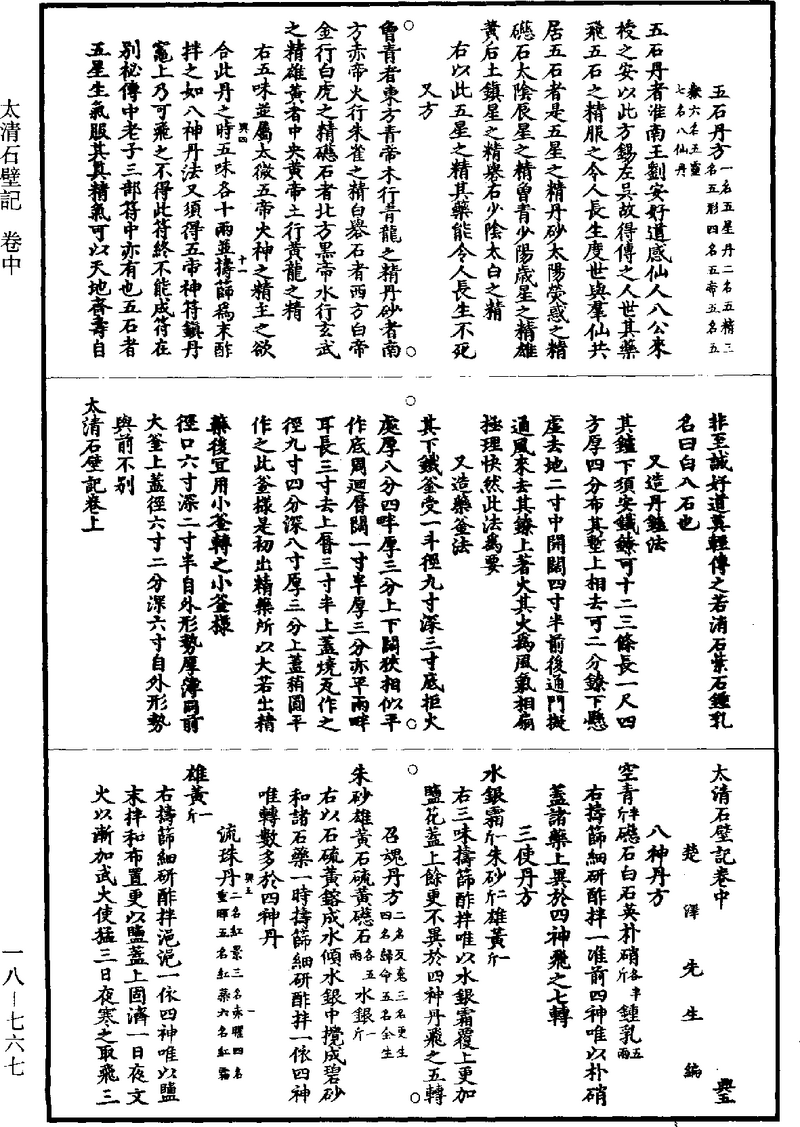 五石丹方一名五星丹二名五精三
名五形四名五帝五名五
嶽六名五靈
七名八仙丹
五石丹者淮南王劉安好道感仙人八公來
授之安以此方錫左吳故得傳之人世其藥
飛五石之精服之令人長生度世與羣仙共
居五石者是五星之精丹砂太陽熒惑之精
礠石太陰辰星之精曾青少陽歲星之精雄
黃后土鎮星之精礜石少陰太白之精
右以此五星之精其藥能令人長生不死
又方
曾青者東方青帝木行青龍之精丹砂者南
方赤帝火行朱雀之精白礜石者西方白帝
金行白虎之精礠石者北方黑帝水行玄武
之精雄黃者中央黃帝土行黃龍之精
右五味並屬太微五帝火神之精主之欲
興四 十一
合此丹之時五味各十兩並擣篩為末酢
拌之如八神丹法又須得五帝神符鎮丹
竈上乃可飛之不得此符終不能成符在
別祕傳中老子三部符中亦有也五石者
五星生氣服其真精氣可以天地齊壽自
非至誠好道莫輕傳之若消石紫石鍾乳
名曰白八石也
又造丹鑪法
其鑪下須安鐵鐐可十二三條長一尺四
方厚四分布其塹上相去可二分鐐下懸
虛去地二寸中開闊四寸半前後通門擬
通風來去其鐐上著火其火為風氣相扇
極理快然此法為要
又造藥釜法
其下鐵釜受一斗徑九寸深三寸底拒火
處厚八分四畔厚三分上下闊狹相似平
作底周迴脣闊一寸半厚三分亦平兩畔
耳長三寸去上脣三寸半上蓋燒瓦作之
徑九寸四分深八寸厚三分上蓋稍圓平
作之此釜樣是初出精藥所以大若出精
藥後宜用小釜轉之小釜樣
徑口六寸深二寸半自外形勢厚薄同前
大釜上蓋徑六寸二分深六寸自外形勢
與前不別
太清石壁記卷上
太清石壁記卷中 興五
楚澤先生編
八神丹方
空青半斤礠石白石英朴硝各半斤鍾乳五兩
右擣篩細研酢拌一准前四神唯以朴硝
蓋諸藥上異於四神飛之七轉
三使丹方
水銀霜一斤朱砂二斤雄黃一斤
右三味擣篩酢拌唯以水銀霜覆上更加
鹽花蓋上餘更不異於四神丹飛之五轉
召魂丹方二名反魂三名更生
四名歸命五名全生
朱砂雄黃石硫黃礠石各五兩水銀一斤
右以石硫黃鎔成水傾水銀中攪成碧砂
和諸石藥一時擣篩細研酢拌一依四神
唯轉數多於四神丹
興五 一
流珠丹二名紅景三名赤曜四名
重暉五名紅藥六名紅霜
雄黃一斤
右擣篩細研酢拌浥浥一依四神唯以鹽
末拌和布置更以鹽蓋上固濟一日夜文
火以漸加武火使猛三日夜寒之取飛三
太清石壁記 卷中
一八—七六七